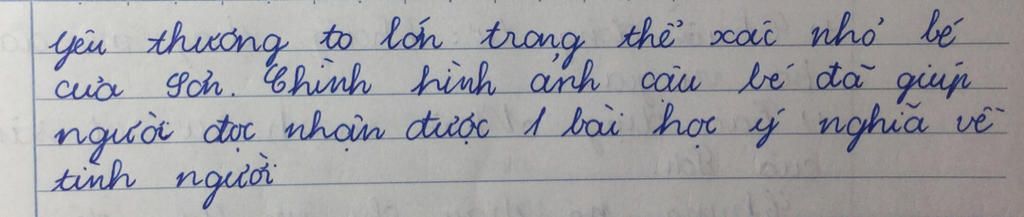 yêu thương to lớn trong thể xác nhỏ bé
của Sơn. Chính hình ảnh cậu bé đã giúp
người đọc nhận được 1 bài học ý nghĩa về
tình người